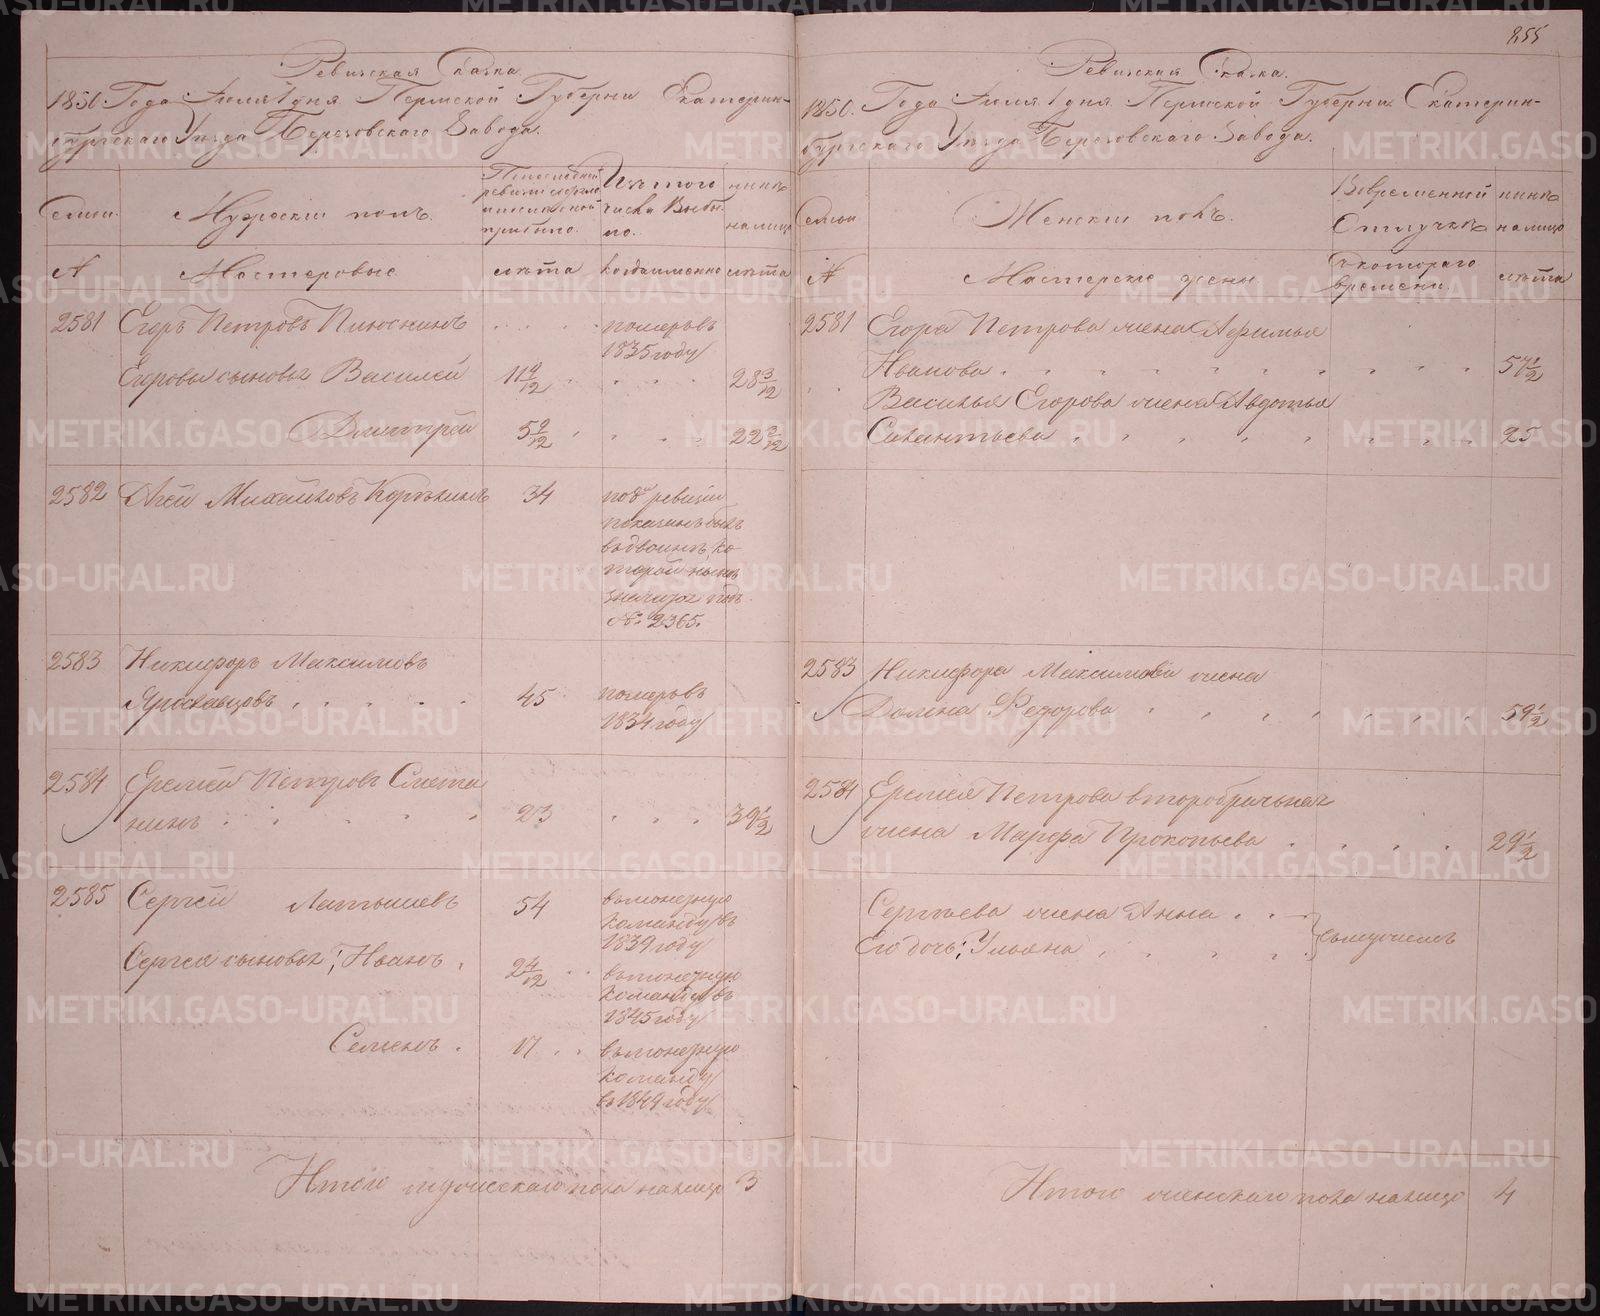 255
Ревизская Сказка.
1850. Года Июля 1 дня Пермской Губернии Екатерин-
бургского Уезда Березовского Завода.
Семьи.
Мужеский полъ.
Последней
ревизии
прибыло.
Изъ того
числа Выбы
ло.
ныне
налицо
№
Мастеровые
лета
когда именно
лета
2581
Егоръ Петровъ Плюснинъ
померъ въ
1835 году
Егоровы сыновья Василей
11 9/12
28 3/12
Дмитрей
5 9/12
22 3/12
2582
Михайловъ
34
по 8 ревизии
показанъ былъ
вдвойне, ко
торой ныне
значится подъ
№. 2365.
2583
Никифоръ Максимовъ
Ярославцовъ
45
померъ въ
1834 году
2584
Еремей Петровъ Смета
нинъ
23
39 1/2
2585
Сергей Латышевъ
54
въ инженерную
команду въ
1839 году
Сергея сыновья: Иванъ
24 4/12
команду въ
1845 году
Семенъ
17
команду
въ 1849 году
Итого мужескаго пола налицо 3
Ревизская Сказка.
1850. Года Июля 1 дня Пермской Губернии Екатерин-
бургского Уезда Березовского Завода.
Семьи
Женский полъ.
Вовременной
Отлучке
ныне
налицо
№
Мастерские жены
съ котораго
времени.
лета
2581
Егора Петрова жена Афимья
Иванова
57 1/2
Василья Егорова жена Авдотья
Савантьева
25
2583
Никифора Максимова жена
Домна Федорова
59 1/2
2584
Еремея Петрова второбрачная
жена Марфа Прокопьева
29 1/2
Сергеева жена Анна
Его дочь: Ульяна
съ мужемъ
Итого женскаго пола налицо 4
METRIKI.GASO-URAL.RU